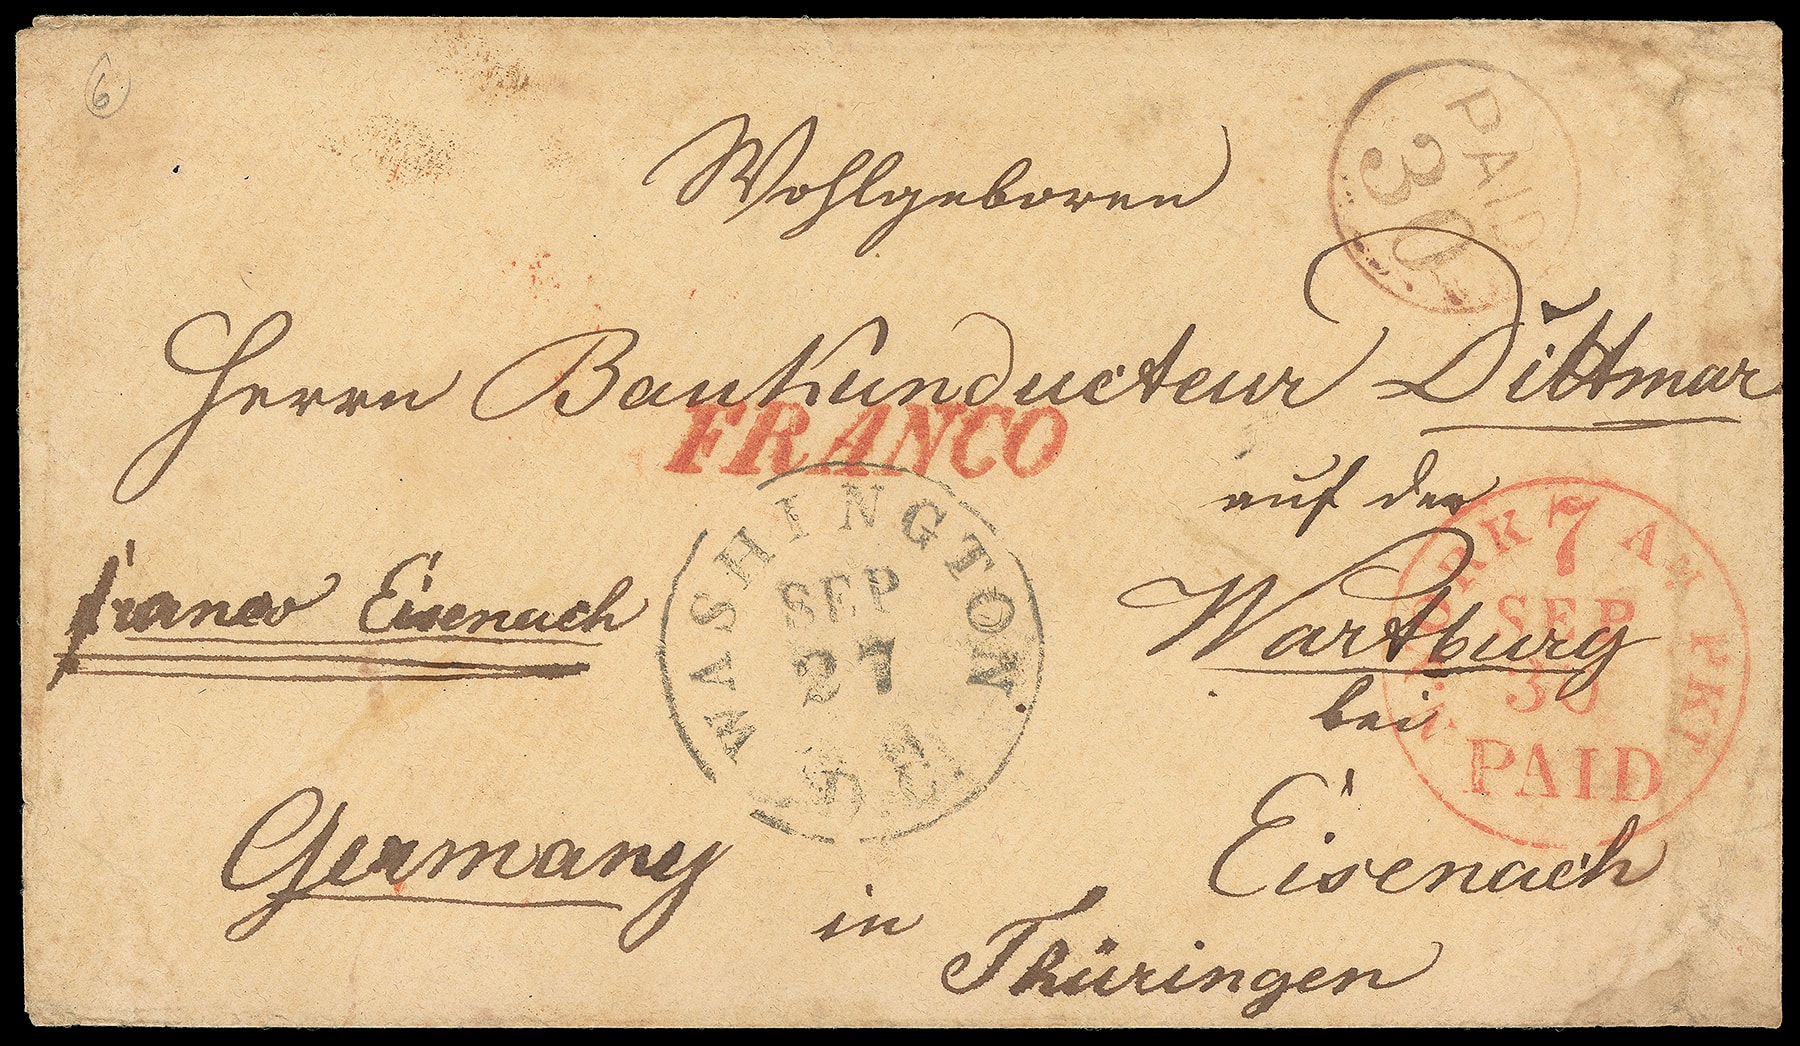 6
PAID
30
Wohlgeboren
Herrn Baukunducteur Dittmar
FRANCO
auf der
Wartburg
bei
Eisenach
in
Thüringen
franco Eisenach
Germany
WASHINGTON
SEP
27
YORK 7 AM PKT
SEP
30
PAID